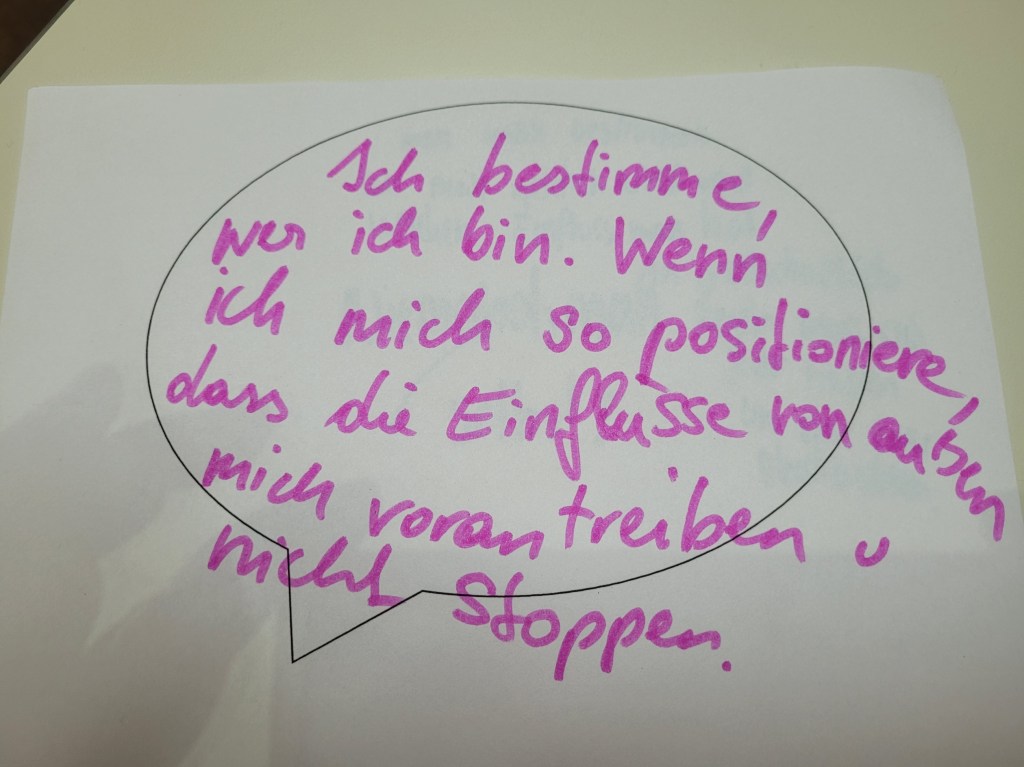 Ich bestimme,
wer ich bin. Wenn
ich mich so positioniere,
dass die Einflüsse von außen
mich vorantreiben u
nicht stoppen.